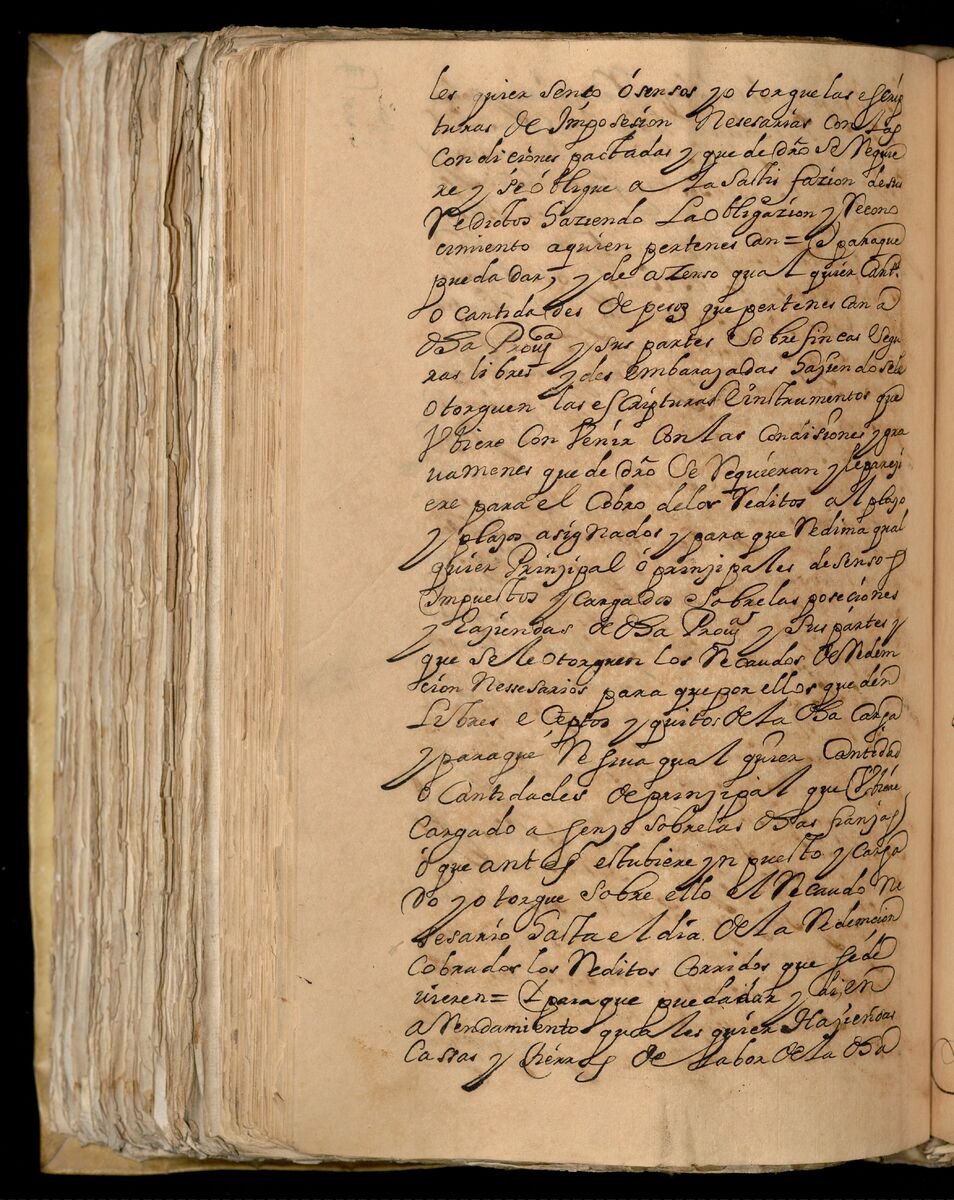 les quier senço ó sensos y otorgue las escrip
turas de Imposesion Nesesarias con las
Condiciones pactadas y que de dro se Requie
re y se óbligue a la satis fazion desus
Reditos haziendo La obligazion y Recono
cimiento a quien pertenescan = Y para que
pueda dar, y de a zenso qual quier Cantd.
o cantidades de pesos que pertenescan a
dha Prouia y sus partes sobre fincas segu
ras libres y des embarajadas hasiendo sele
otorguen las escripturas e instrumentos que
Vbiere Con Venir Con las Condisiones y gra
uamenes que de dro se Requieran y le pareji
ere para el Cobro de los Reditos al plajo
y plajos asignados y para que Redima qual
quier Prinjipal ó prinjipales de senso s
Impuestos y cargados sobre las poseciones
y Hajiendas de dha Prouia y sus partes y
que se le otorguen los Recaudos de Redem
cion Nessesarios para que por ellos que den
Libres e Ceptos y quitos de la dha Carga
y para que Resiua qual quier Cantidad
o Cantidades de prinjipal que Vbiere
Cargado a senso sobre las dhas franjas
ó que antes estubiere ynpuesto y carga
do y otorgue sobre ello el Recaudo Ne
sesario hasta el dia de la Redemcion
Cobrados los Reditos Corridos que se de
uieren = Y para que pueda dar y dé en
a Rendamiento quales quier Hajiendas
Cassas y tierras de labor de la dha